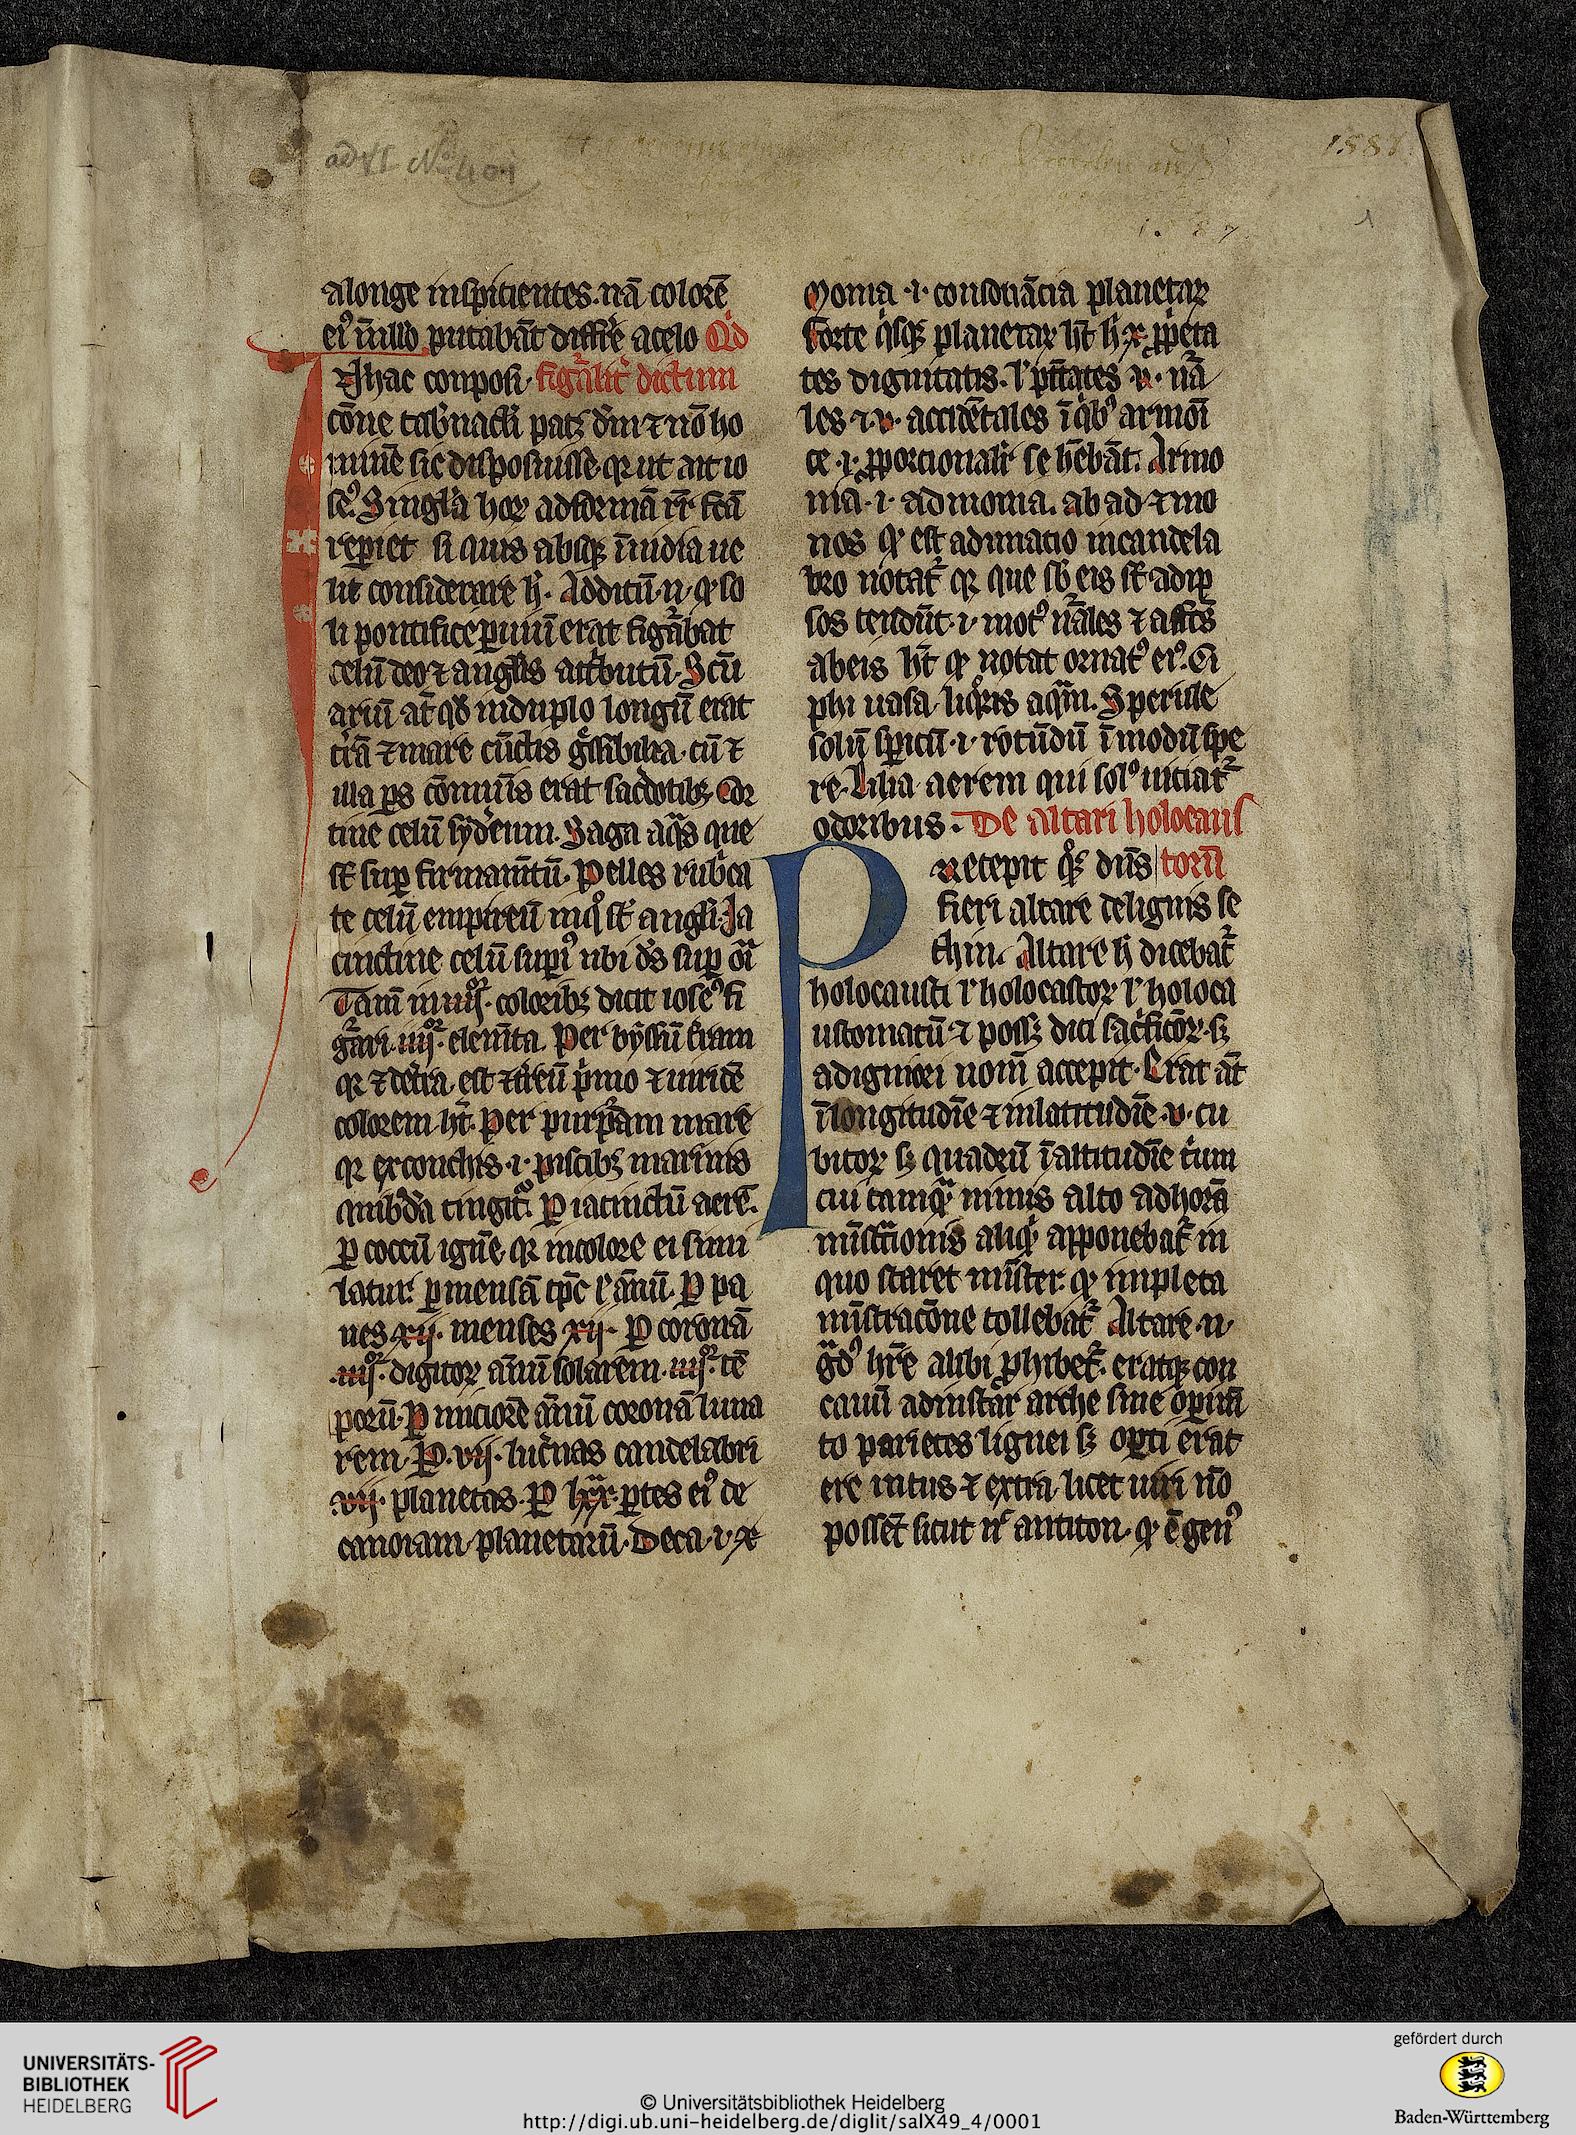 ad VI No 401
1587
1
alonge inspicientes. nā colorē
ei᾽ ī nullo putabāt differe̅ acelo Qd
In hac conposi figᵃlit᷑ dictum
cōne tab̄nacłi patꝫ dm̄ ⁊ nō ho
minē sic disposuisse. qꝛ ut ait io
se᾽. Singła hoꝝ ad formā rꝝ fc̄ā
repiet si quis absqꝫ īuidia ue
lit considerare h̄. Additū. n. qđ so
li pontifice puiū erat figᵃbat
celū deo ⁊ angłis attͥbutū. Scū
ariū at̄ qđ induplo longū erat
tr̄ā ⁊ mare cūctis gͤssibilia. cū ⁊
illa ꝑs cōmuīs erat sac̄dotibꝫ Cor
tine celū syd̄eum. Saga aqᵃs que
st̄ suꝑ firmam̄tū. Pelles rub̄ca
te celū empireū īnqͦ st̄ angłi. Ja
cinctine celū supi᾽ ubi ds̄ suꝑ oīa
Tam̄ in iiiiᵒʳ. coloribꝫ dicit iose᾽ fi
gᵃri. iiiiᵒʳ. elem̄ta. Per byssū terram
qꝛ ⁊ de tr̄a est ⁊ tr̄eū pͥmo ⁊ uiridē
colorem ht̄. Per purp̄am mare
qꝛ ex conchis .i. piscibꝫ marinis
quibd̄a tingit᷑. ꝑ iacinctū aerē.
ꝑ coccū ignē qꝛ incolore ei simi
latur. ꝑ mensā tp̄c ł annū. ꝑ pa
nes xij. menses xij. ꝑ coronā
.iiijᵒʳ. digitoꝝ annū solarem. iiijᵒʳ. tē
porū. ꝑ minciorē annū coronā luna
rem. ꝑ .vij. luc̄nas candelabri
.vij. planetas. ꝑ lxx. ꝑtes ei᾽ de
canoiam planetarū. Deca .i. x
Monia .i. consonācia planetaꝝ
Forte qͥsqꝫ planetaꝝ ht̄ h̄ x ꝓpͥeta
tes dignitatis. ł potētates v. nᵃ
les ⁊ v. accidētales ī qͥbꝫ armōi
ce .i. ꝓporcionalit᷑ se hēbāt. Armo
nia .i. admonia. ab ad ⁊ mo
nos qđ est adunatio incandela
bro notat᷑ qꝛ que sb eis st̄ ad ip
sos tendūt .i. mot᾽ nᵃles ⁊ affc̄s
ab eis ht̄ qđ notat ornat᾽ ei᾽. Ci
phi uasa liqͦris aqͣm. Sperule
solū sp̄icū .i. rotūdū ī modū spe
re. Lilia aerem qui solᵒ uitiat᷑
odoribus. De altari holocaus
Precepit qͦꝫ dn̄s torū
fieri altare delignis se
thin. Altare h̄ dicebat᷑
holocausti ł holocastoꝝ ł holoca
ustomatū ⁊ possꝫ dici sacͥficioꝝ. sꝫ
adigniori nom̄ accepit. Erat at̄
ī longitudīe ⁊ in latitudīe v. cu
bitoꝝ sꝫ quadrū ī altitudīe tͥum
cui tamqͣ minus alto ad horā
mīstrionis aliqđ apponebat᷑ in
quo staret mīster. qđ impleta
mīstracōne tollebat᷑ Altare. n.
gͣdᵒ hr̄e alibi ꝓhibet᷑. eratqꝫ con
cauū ad instar arche sine opim̄
to parietes lignei sꝫ opti erāt
ere intus ⁊ extra licet uiri nō
posset sicut nͨ antiton. qđ ē gen᾽
UNIVERSITÄTS-
BIBLIOTHEK
HEIDELBERG
© Universitätsbibliothek Heidelberg
http://digi.ub.uni-heidelberg.de/diglit/salX49_4/0001
gefördert durch
Baden-Württemberg